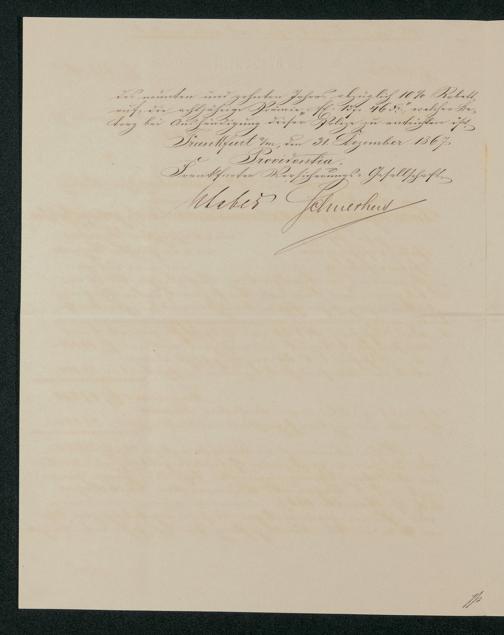 des neunten und zehnten Jahres abzüglich 10 % Rabatt,
auf die achtjährige Prämie, fl. 46 welcher Be-
trag bei Aushändigung dieser Police zu entrichten ist.
Frankfurt a/m, den 31. Dezember 1867.
Providentia.
Frankfurter Versicherungs-Gesellschaft.
Weber